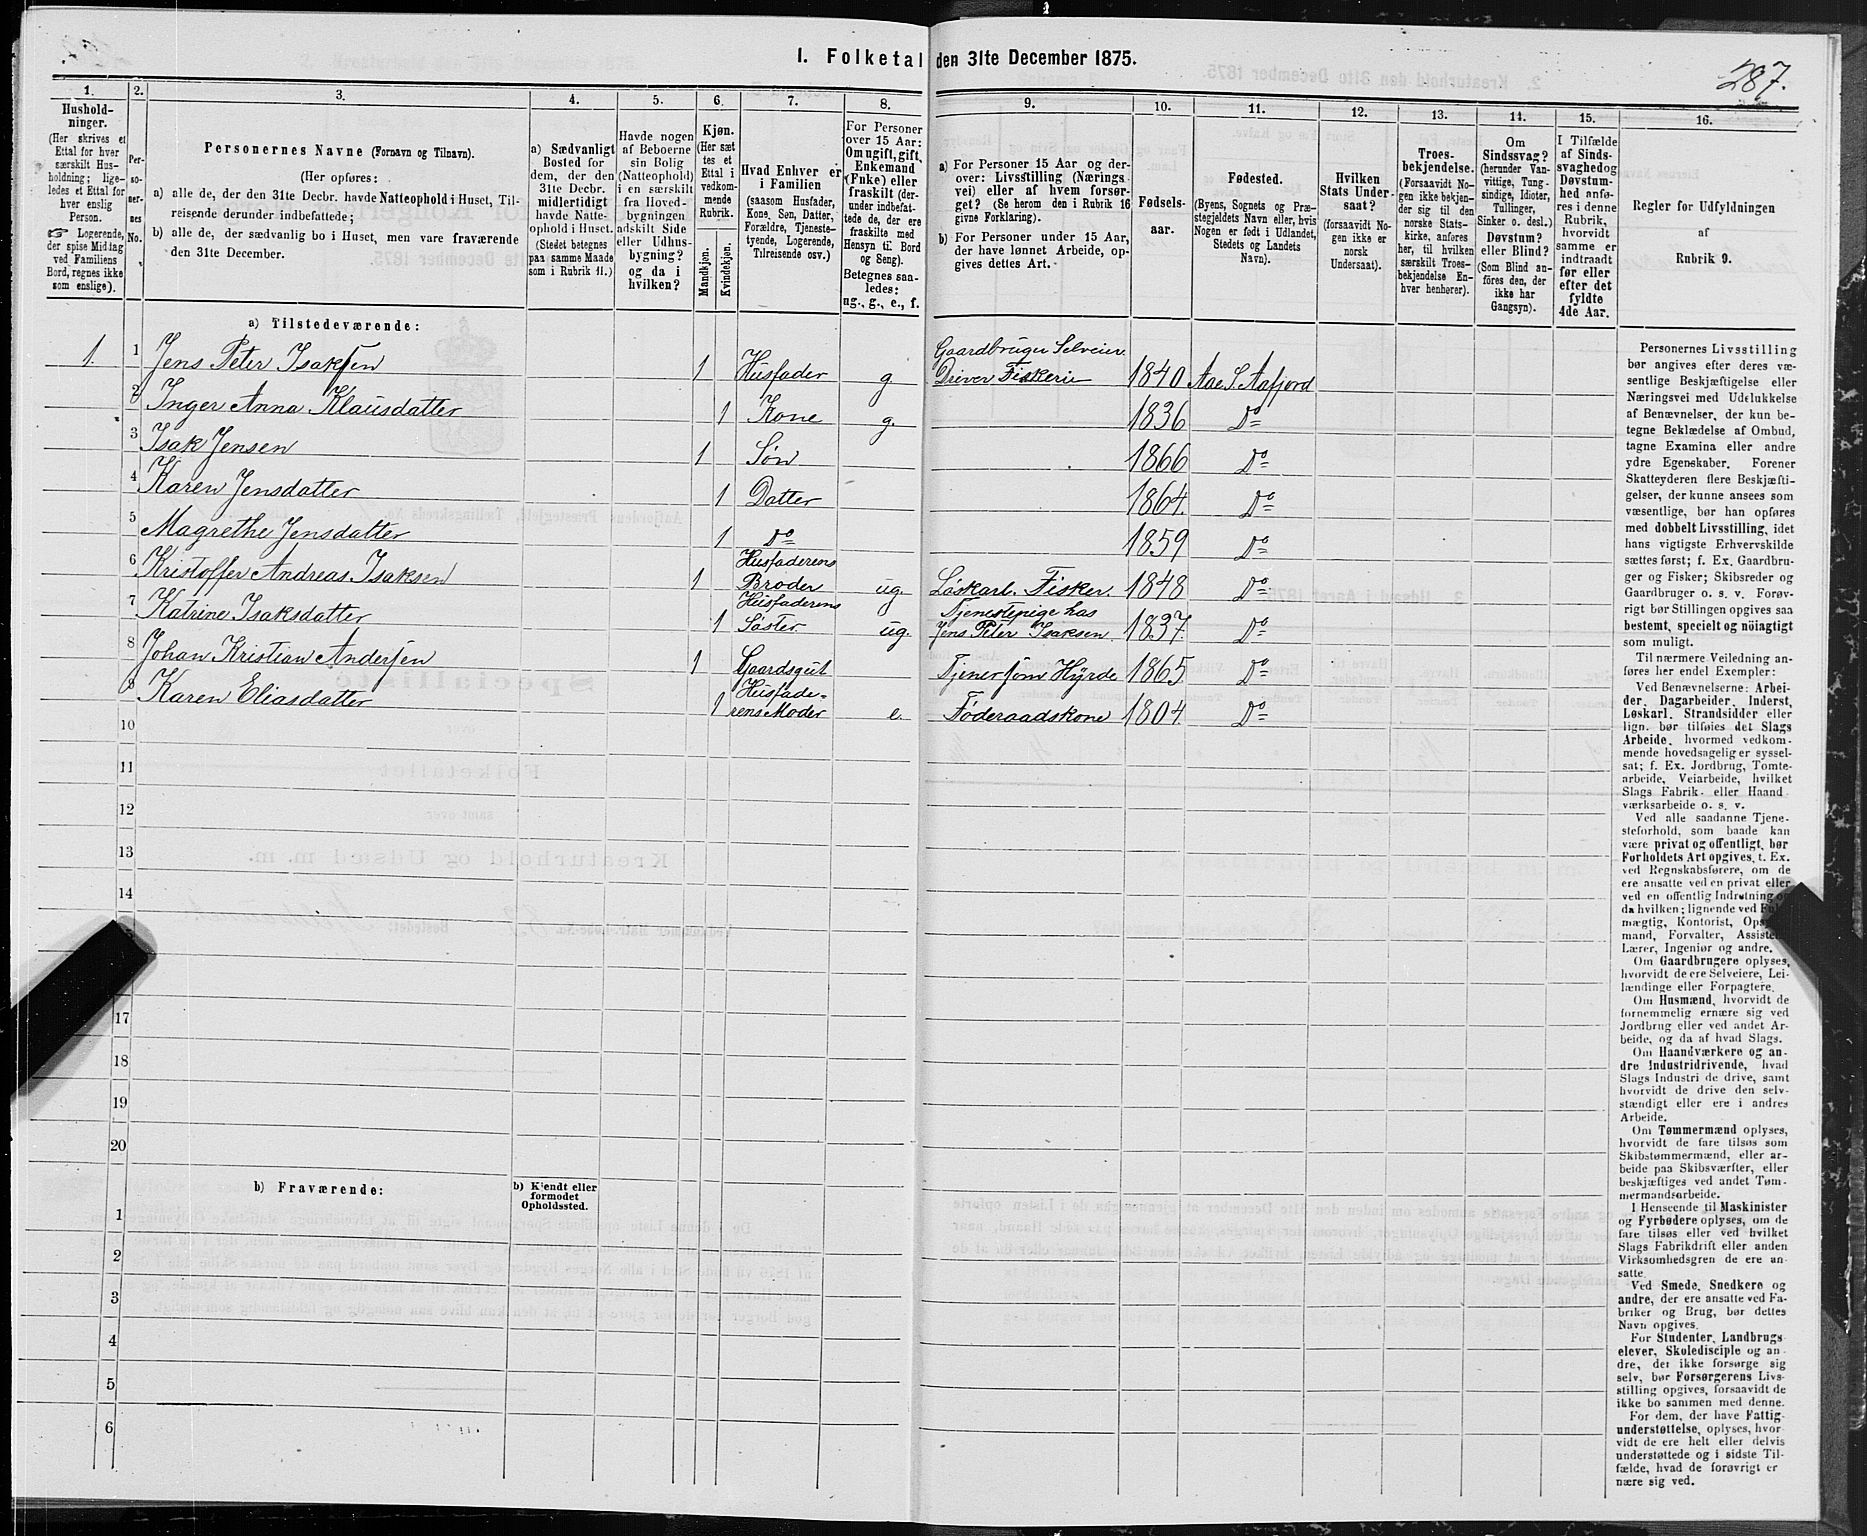 I. Folketal den 31te December 1875.
287.
1.
2.
3.
4.
5.
6.
7.
8.
9.
10.
11.
12.
13.
14.
15.
16.
Hushold-
ninger.
(Her skrives et
Ettal for hver
særskilt Hus-
holdning; lige-
ledes et Ettal for
hver enslig
Person.
☞ Logerende,
der spise Middag
ved Familiens
Bord, regnes ikke
som enslige).
Per-
so-
ner-
nes
No.
Personernes Navne (Fornavn og Tilnavn).
(Her opføres:
a) alle de, der den 31te Decbr. havde Natteophold i Huset, Til-
reisende derunder indbefattede;
b) alle de, der sædvanlig bo i Huset, men vare fraværende
den 31te December.
a) Sædvanligt
Bosted for
dem, der den
31te Decbr.
midlertidigt
havde Natte-
ophold i Huset.
(Stedet betegnes
paa samme Maade
som i Rubrik 11.)
Havde nogen
af Beboerne
sin Bolig
(Natteophold)
i en særskilt
fra Hoved-
bygningen
adskilt Side
eller Udhus-
bygning?
og da i
hvilken?
Kjøn.
(Her sæt
tes et
Ettal i
vedkom-
mende
Rubrik.
Mandkjøn.
Kvindekjøn.
Hvad Enhver er
i Familien
(saasom Husfader,
Kone, Søn, Datter,
Forældre, Tjeneste-
tyende, Logerende,
Tilreisende osv.)
For Personer
over 15 Aar:
Om ugift, gift,
Enkemand
(Enke) eller
fraskilt (der-
under indbefat-
tede de, der ere
fraskilte med
Hensyn til Bord
og Seng).
Betegnes saa-
ledes:
ug., g., e., f.
a) For Personer 15 Aar og der-
over: Livsstilling (Nærings-
vei) eller af hvem forsør-
get? (Se herom den i Rubrik 16
givne Forklaring).
b) For Personer under 15 Aar,
der have lønnet Arbeide, op-
gives dettes Art.
Fødsels-
aar.
Fødested.
(Byens, Sognets og Præ-
stegjeldets Navn eller, hvis
Nogen er født i Udlandet,
Stedets og Landets
Navn).
Hvilken
Stats Under-
saat?
(forsaavidt No-
gen ikke er
norsk
Undersaat).
Troes-
bekjendelse.
(Forsaavidt No-
gen ikke bekjen-
der sig til den
norske Stats-
kirke, anføres
her, til hvilken
særskilt Troes-
bekjendelse En-
hver henhører).
Om
Sindssvag?
(herunder Van-
vittige, Tung-
sindige, Idioter,
Tullinger,
Sinker o. desl.)
Døvstum?
eller Blind?
(Som Blind an-
føres den, der
ikke har
Gangsyn).
I Tilfælde
af Sinds-
svaghed og
Døvstum-
hed anfø-
res i denne
Rubrik,
hvorvidt
samme er
indtraadt
før eller
efter det
fyldte
4de Aar.
Regler for Udfyldningen
af
Rubrik 9.
a) Tilstedeværende:
1. 1 Jens Peter Isaksen 1 Husfader g Gaardbruger Selveier Driver Fiskeri 1840 Aae S. Aafjord
2 Inger Anna Klausdatter 1 Kone g. 1836 Do
3 Isak Jensen 1 Søn 1866 Do
4 Karen Jensdatter 1 Datter 1864. Do
5 Magrethe Jensdatter 1 Do 1859 Do
6 Kristoffer Andreas Isaksen 1 Husfaderens Broder ug. Løskarl. Fisker. 1848 Do
7 Katrine Isaksdatter 1 Husfaderens Søster ug. Tjenestepige hos Jens Peter Isaksen. 1837. Do
8 Johan Kristian Andersen 1 Gaardsgut Tjener som Hyrde 1865 Do
9 Karen Eliasdatter 1 Husfade- rens Moder e. Føderaadskone 1804. Do
10
11
12
13
14
17
18
19
20
b) Fraværende:
b) Kjendt eller
formodet
Opholdssted.
1
2
3
4
5
6
Personernes Livsstilling
bør angives efter deres væ-
sentlige Beskjæftigelse eller
Næringsvei med Udelukkelse
af Benævnelser, der kun be-
tegne Beklædelse af Ombud,
tagne Examina eller andre
ydre Egenskaber. Forener
Skatteyderen flere Beskjæfti-
gelser, der kunne ansees som
væsentlige, bør han opføres
med dobbelt Livsstilling, idet
hans vigtigste Erhvervskilde
sættes først; f. Ex. Gaardbru-
ger og Fisker; Skibsreder og
Gaardbruger o. s. v. Forøv-
rigt bør Stillingen opgives saa
bestemt, specielt og nøiagtigt
som muligt.
Til nærmere Veiledning an-
føres her endel Exempler:
Ved Benævnelserne: Arbei-
der, Dagarbeider, Inderst,
Løskarl, Strandsidder eller
lign. bør tilføies det Slags
Arbeide, hvormed vedkom-
mende hovedsagelig er syssel-
sat; f. Ex. Jordbrug, Tomte-
arbeide, Veiarbeide, hvilket
Slags Fabrik- eller Haand
værksarbeide o. s. v.
Ved alle saadanne Tjene-
steforhold, som baade kan
være privat og offentligt, bør
Forholdets Art opgives, t. Ex.
ved Regnskabsførere, om de
ere ansatte ved en privat eller
ved en offentlig Indretning og
da hvilken; lignende ved
mægtig, Kontorist,
mand, Forvalter,
Lærer, Ingeniør og andre.
Om Gaardbrugere oplyses,
hvorvidt de ere Selveiere, Lei-
lændinge eller Forpagtere.
Om Husmænd, hvorvidt de
fornemmelig ernære sig ved
Jordbrug eller ved andet Ar-
beide, og da af hvad Slags.
Om Haandværkere og an-
dre Industridrivende, hvad
Slags Industri de drive, samt
hvorvidt de drive den selv-
stændigt eller ere i andres
Arbeide.
Om Tømmermænd oplyses,
hvorvidt de fare tilsøs som
Skibstømmermænd, eller ar-
beide paa Skibsværfter, eller
beskjæftiges ved andet Tøm-
mermandsarbeide.
I Henseende til Maskinister
og Fyrbødere oplyses, om de
fare tilsøs eller ved hvilket
Slags Fabrikdrift eller anden
Virksomhedsgren de ere an-
satte.
Ved Smede, Snedkere og
andre, der ere ansatte ved Fa-
briker og Brug, bør dettes
Navn opgives.
For Studenter, Landbrugs
elever, Skoledisciple og an-
dre, der ikke forsørge sig
selv, bør Forsørgerens Livs-
stilling opgives, forsaavidt de
ikke bo sammen med denne.
For dem, der have Fattig-
understøttelse, oplyses, hvor-
vidt de ere helt eller delvis
understøttede og i sidste Til-
fælde, hvad de forøvrigt er
nære sig ved.